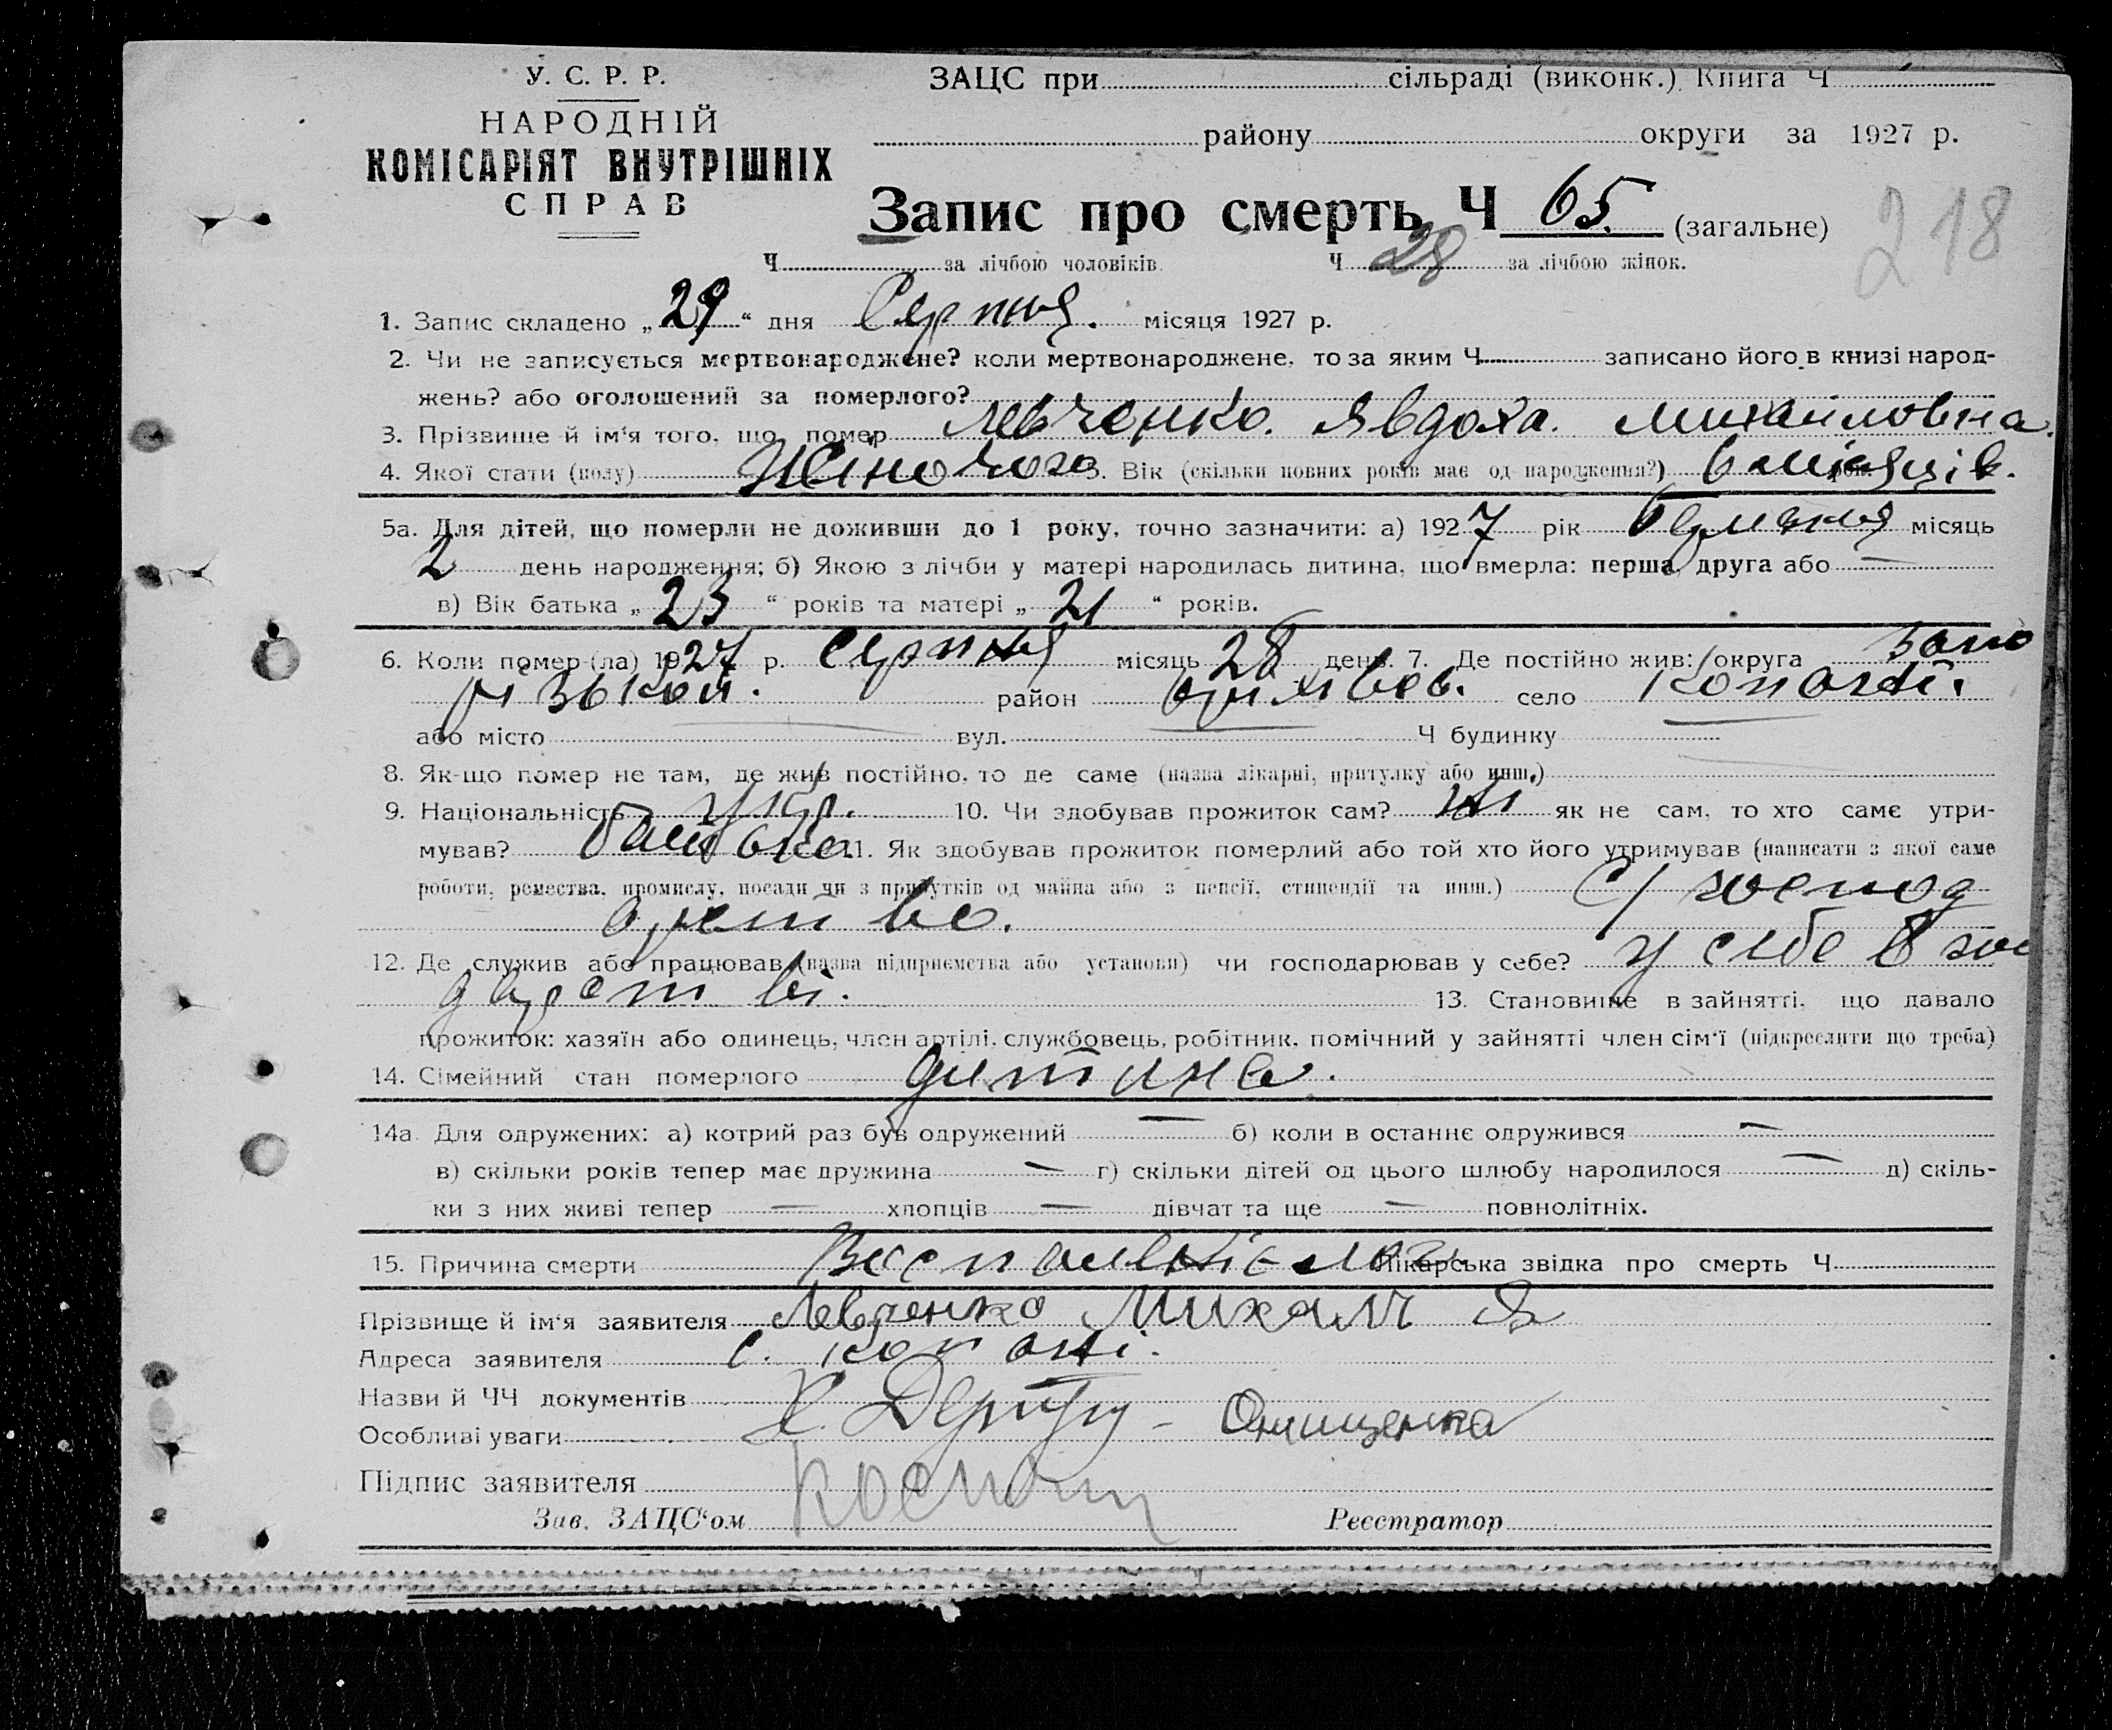 У. С. Р. Р.
НАРОДНІЙ
КОМІСАРІЯТ ВНУТРІШНІХ
СПРАВ
ЗАЦС при сільраді (виконк.) Книга Ч
району округи за 1927 р.
Запис про смерть Ч 65. (загальне)
218
Ч за лічбою чоловіків. Ч 28 за лічбою жінок.
1. Запис складено „29“ дня Серпня. місяця 1927 р.
2. Чи не записується мертвонароджене? коли мертвонароджене, то за яким Ч записано його в книзі народ-
жень? або оголошений за померлого?
3. Прізвище й ім'я того, що помер Левченко. Явдоха. Михайловна.
4. Якої стати (полу) Жіночого 5. Вік (скільки повних років має од народження?) 6 місяців.
5а. Для дітей, що померли не доживши до 1 року, точно зазначити: а) 1927 рік місяць
2 день народження; б) Якою з лічби у матері народилась дитина, що вмерла: перша, друга або —
в) Вік батька „23“ років та матері „21“ років.
6. Коли помер (ла) 1927 р. Серпня місяць 28 день. 7. Де постійно жив: округа Запо
різької. район село Копані.
або місто вул. Ч будинку
8. Як-що помер не там, де жив постійно, то де саме (назва лікарні, притулку або инш.)
9. Національність Укр. 10. Чи здобував прожиток сам? ні як не сам, то хто саме утри-
мував? батько. 11. Як здобував прожиток померлий або той хто його утримував (написати з якої саме
роботи, ремества, промислу, посади чи з прибутків од майна або з пенсії, стипендії та инш.) С/господ
арство.
12. Де служив або працював (назва підприємства або установи) чи господарював у себе? у себе в гос
дарстві. 13. Становище в зайнятті, що давало
прожиток: хазяїн або одинець, член артілі, службовець, робітник, помічний у зайнятті член сім'ї (підкреслити що треба)
14. Сімейний стан померлого дитина.
14а. Для одружених: а) котрий раз був одружений — б) коли в останнє одружився —
в) скільки років тепер має дружина — г) скільки дітей од цього шлюбу народилося — д) скіль-
ки з них живі тепер — хлопців — дівчат та ще — повнолітніх.
15. Причина смерти Лікарська звідка про смерть Ч
Прізвище й ім'я заявителя Левченко Михаил
Адреса заявителя с. Копані.
Назви й ЧЧ документів
Особливі уваги Онищенка
Підпис заявителя
Зав. ЗАЦС'ом Реєстратор